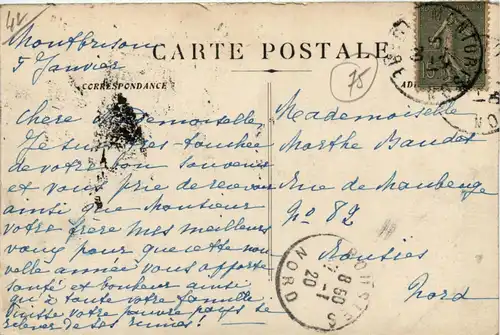 4v
Montbrison
5 Janvier
CARTE POSTALE
75
CORRESPONDANCE
Chère Mademoiselle
Je suis très touchée
de votre bon souvenir
et vous prie de recevoir
ainsi que Monsieur
votre frère mes meilleurs
vœux pour que cette nou
velle année vous apporte
santé et bonheur ainsi
qu'à toute votre famille
Puisse votre pauvre pays se
relever de ses ruines!
Mademoiselle
Marthe Baudot
rue de Maubeuge
No 82
Rousies
Nord
ROUSIES
8 50
-1
20
NORD